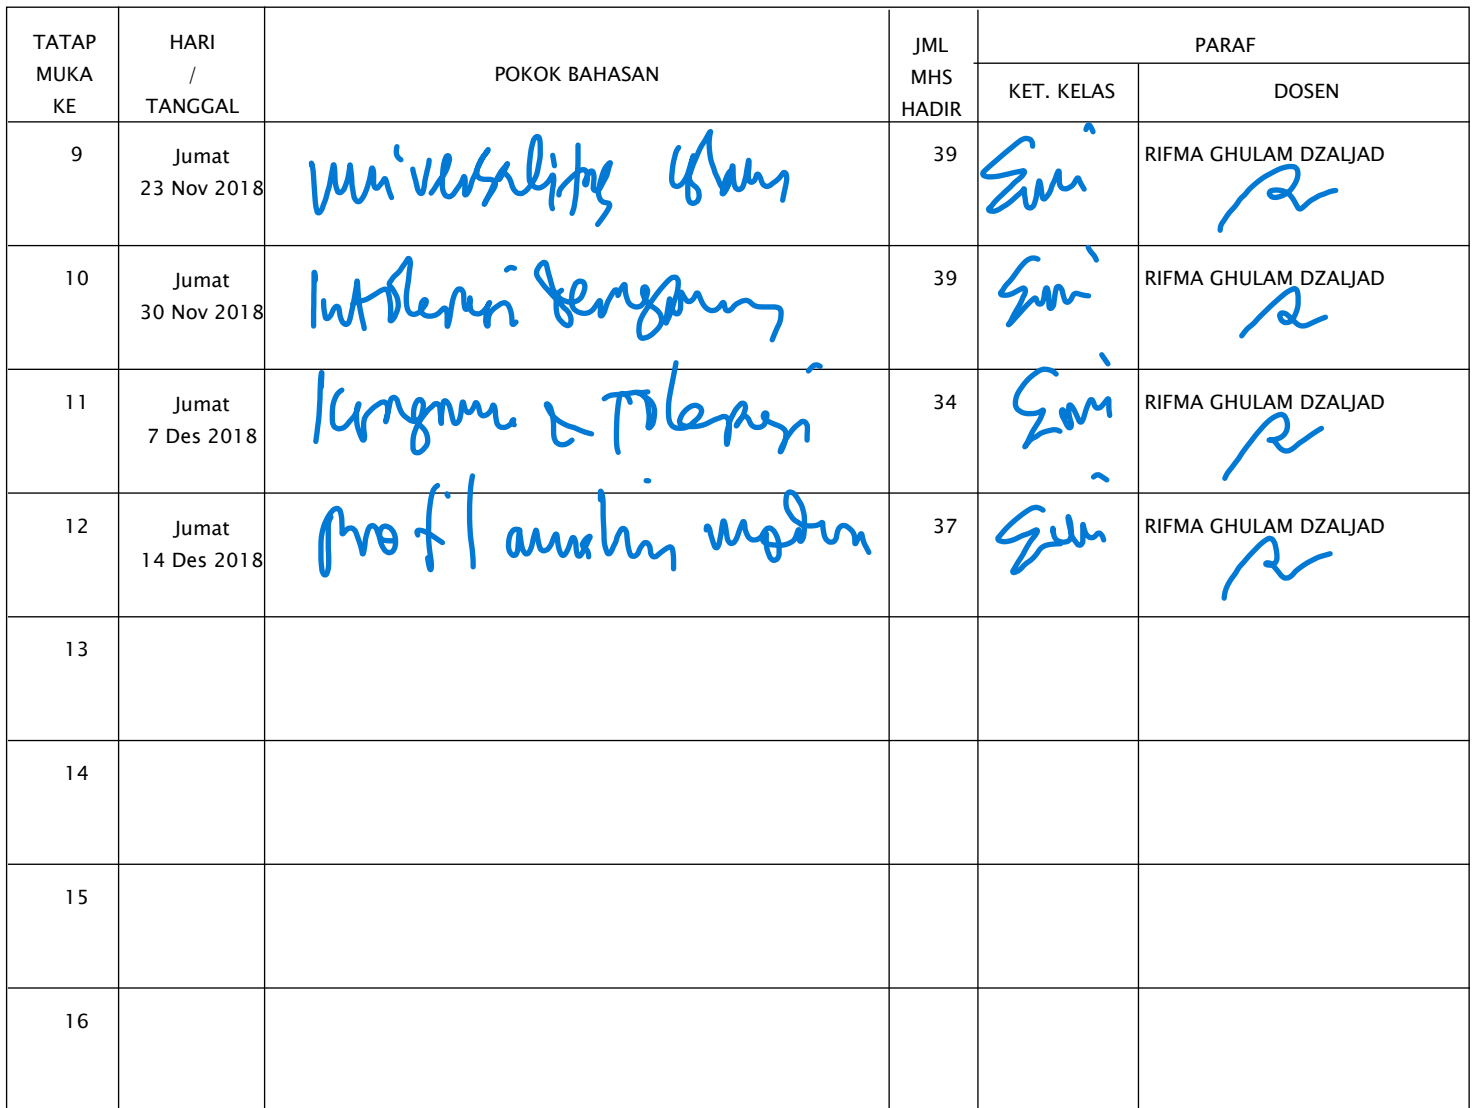 TATAP MUKA KE HARI / TANGGAL POKOK BAHASAN JML MHS HADIR PARAF
KET. KELAS DOSEN
9 Jumat 23 Nov 2018 universalitas Islam 39 RIFMA GHULAM DZALJAD
10 Jumat 30 Nov 2018 Intoleransi 39 RIFMA GHULAM DZALJAD
11 Jumat 7 Des 2018 Toleransi 34 RIFMA GHULAM DZALJAD
12 Jumat 14 Des 2018 profil muslim modern 37 RIFMA GHULAM DZALJAD
13
14
15
16